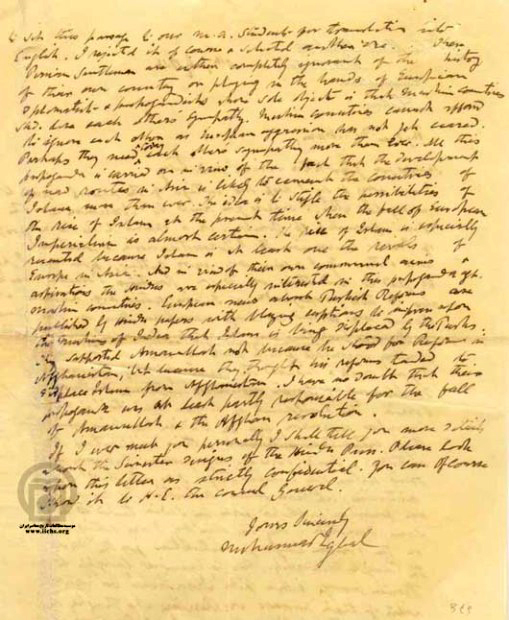 to set this passage to our M.A. Students for translation into
English. I rejected it of course & selected another one. These
Persian Gentlemen are either completely ignorant of the history
of their own country or playing in the hands of European
diplomatists & propagandists whose sole object is that Muslim Countries
shd. lose each other's sympathy. Muslim countries cannot afford
to ignore each other as European aggression has not yet ceased.
Perhaps they need today each other's sympathy more than ever. All this
propaganda is carried on in view of the fact that the development
of new routes in Asia is likely to cement the countries of
Islam more than ever. The idea is to stifle the possibilities of
the rise of Islam at the present time when the fall of European
Imperialism is almost certain. The of Islam is especially
resented because Islam is at least one the rivals of
Europe in Asia. And in view of their own communal aims &
aspirations the Hindus are especially interested in this propaganda agt.
Muslim countries. European news about Turkish Reforms are
published by Hindu papers with captions to impress upon
the Muslims of India that Islam is being displaced by the Turks.
They supported Amanullah not because he stood for Reform in
Afghanistan, but because they thought his reforms tended to
displace Islam from Afghanistan. I have no doubt that their
propaganda was at least partly responsible for the fall
of Amanullah & the Afghan revolution.
If I ever meet you personally I shall tell you more details
about the Sinister designs of the Hindu Press. Please look
upon this letter as strictly confidential. You can of course
show it to H.E. the Consul General.
Yours Sincerely
Mohammad Iqbal
موسسه مطالعات تاریخ معاصر ایران
www.iichs.org